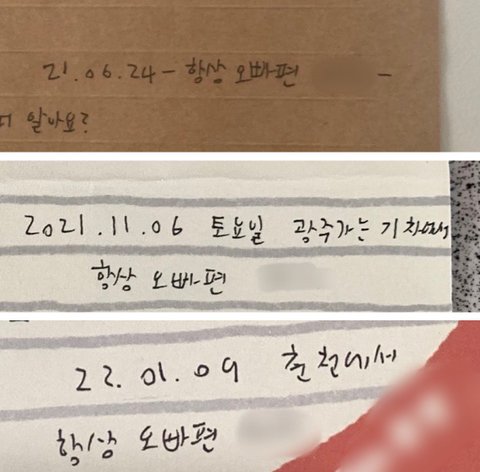 21.06.24 - 항상 오빠편 -
알아요?
2021.11.06 토요일 광주가는 기차에서
항상 오빠편
22.01.09 춘천에서
항상 오빠편